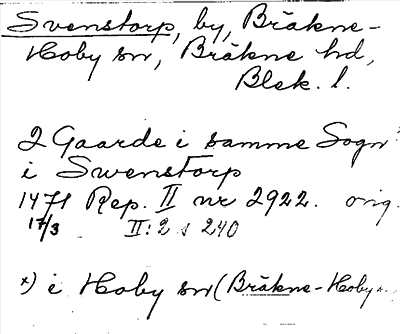 Svenstorp, by, Bräkne-
Hoby sn, Bräkne hd,
Blek. l.
2 Gaarde i samme Sogn x)
i Swenstorp
1471 Rep. II nr 2922. orig.
17/3 II:2 s 240
x) i Hoby sn (Bräkne-Hoby